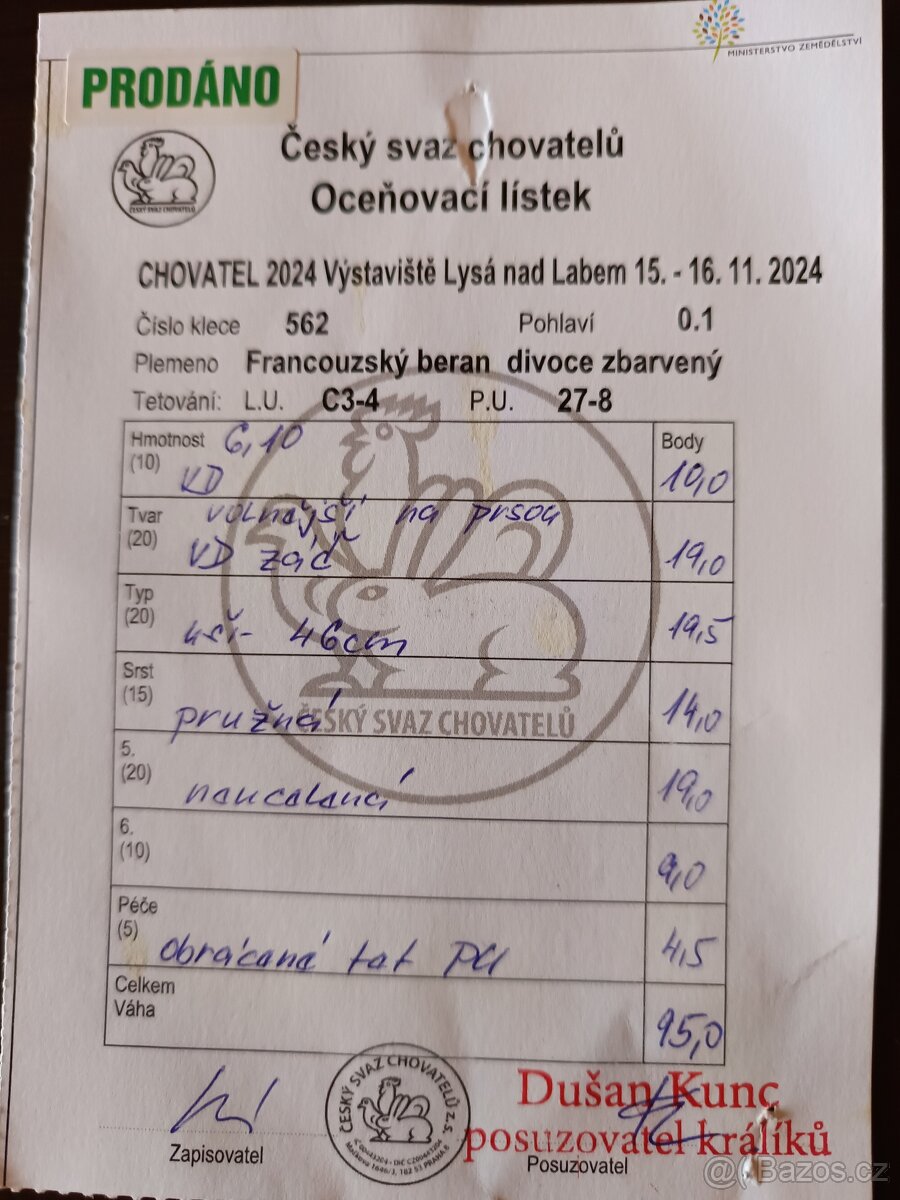 MINISTERSTVO ZEMĚDĚLSTVÍ
PRODÁNO
Český svaz chovatelů
Oceňovací lístek
ČESKÝ SVAZ CHOVATELŮ
CHOVATEL 2024 Výstaviště Lysá nad Labem 15. - 16. 11. 2024
Číslo klece 562 Pohlaví 0.1
Plemeno Francouzský beran divoce zbarvený
Tetování: L.U. C3-4 P.U. 27-8
Hmotnost 6,10 Body
(10) VD 10,0
Tvar volnější na prsou
(20) VD záď 19,0
Typ
(20) uši- 46cm 19,5
Srst
(15) pružná 14,0
ČESKÝ SVAZ CHOVATELŮ
5.
(20) 19,0
6.
(10) 9,0
Péče
(5) obrácaná tat PU 4,5
Celkem
Váha 95,0
ČESKÝ SVAZ CHOVATELŮ z.s.
Dušan Kunc
posuzovatel králíků
Zapisovatel Posuzovatel
@Bazos.cz